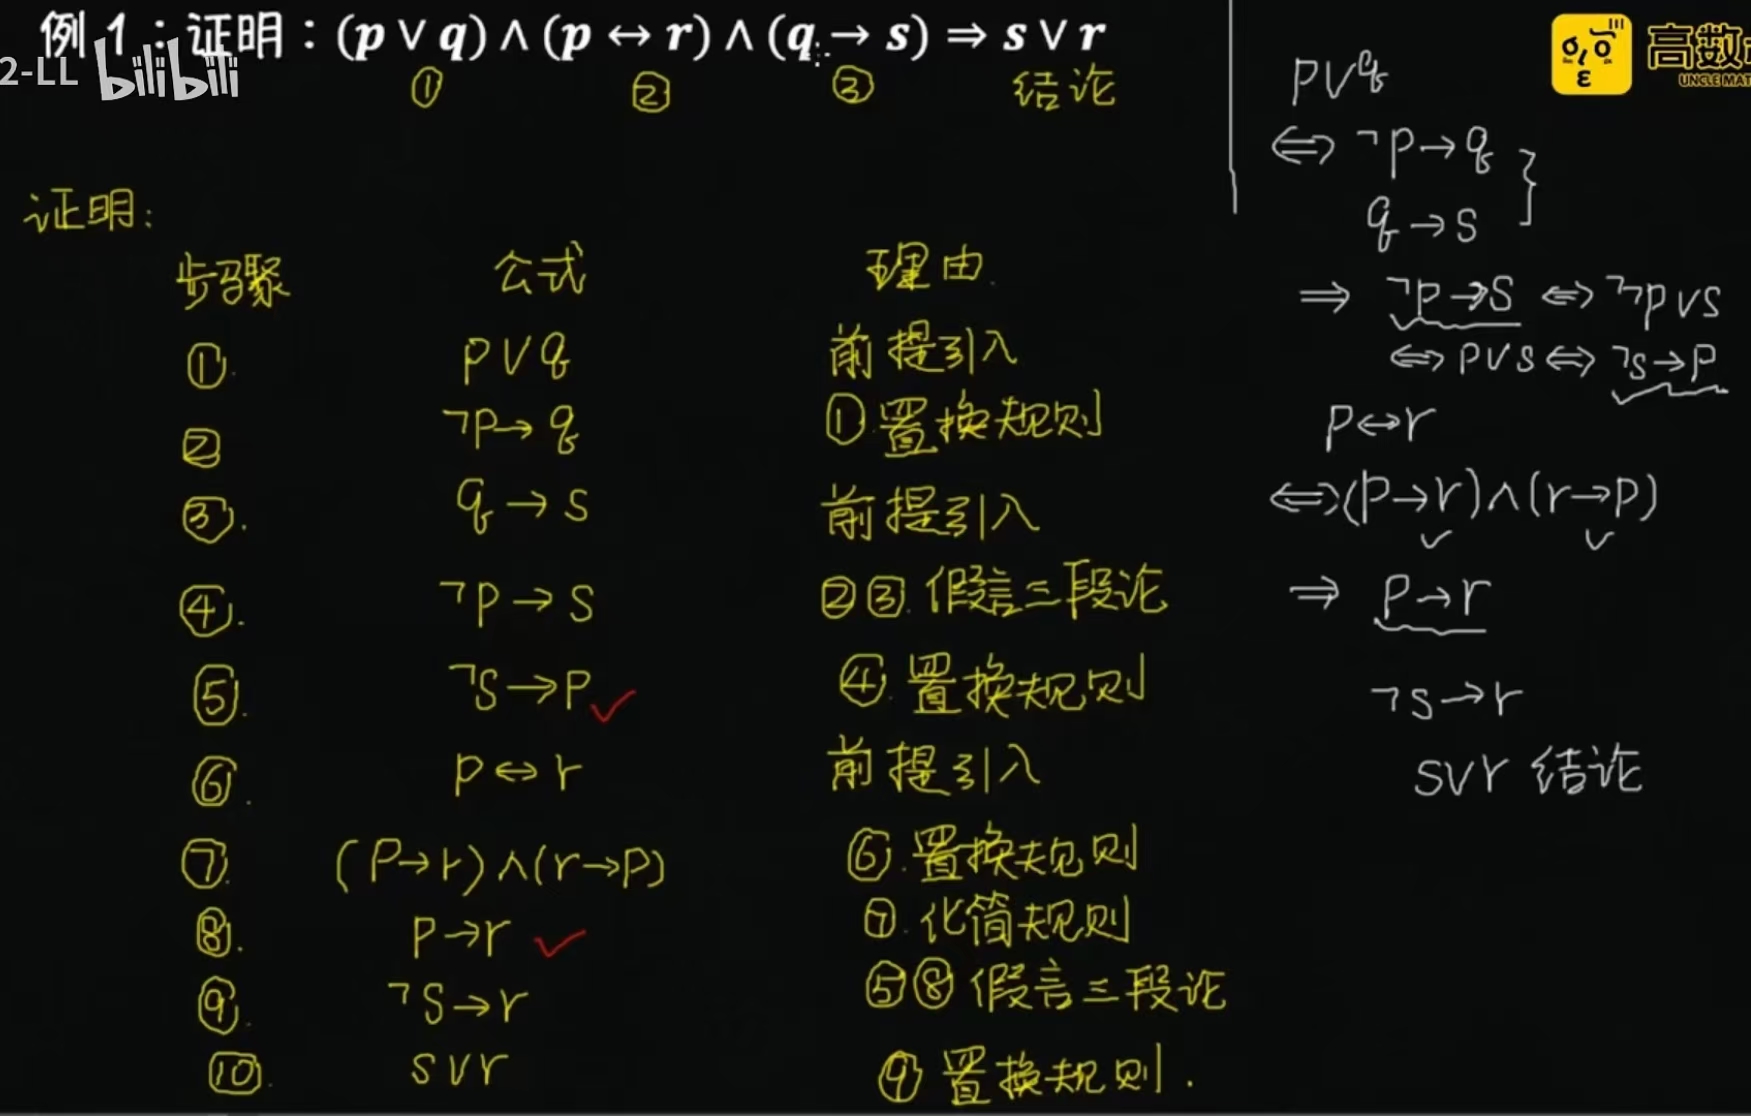 例 1：证明：(p ∨ q) ∧ (p ↔ r) ∧ (q → s) ⇒ s ∨ r
2-LL bilibili
① ② ③ 结论
证明：
步骤 公式 理由
①. p∨q 前提引入
② ¬p→q ①.置换规则
③. q→s 前提引入
④. ¬p→s ②③.假言三段论
⑤. ¬s→p ✓ ④.置换规则
⑥. p↔r 前提引入
⑦. (p→r)∧(r→p) ⑥.置换规则
⑧. p→r ✓ ⑦.化简规则
⑨. ¬s→r ⑤⑧假言三段论
⑩. s∨r ⑨置换规则.
p∨q
⇔ ¬p→q }
q→s
⇒ ¬p→s ⇔ ¬¬p∨s
⇔ p∨s ⇔ ¬s→p
p↔r
⇔(p→r)∧(r→p)
✓ ✓
⇒ p→r
¬s→r
s∨r 结论
高数
UNCLE MAT